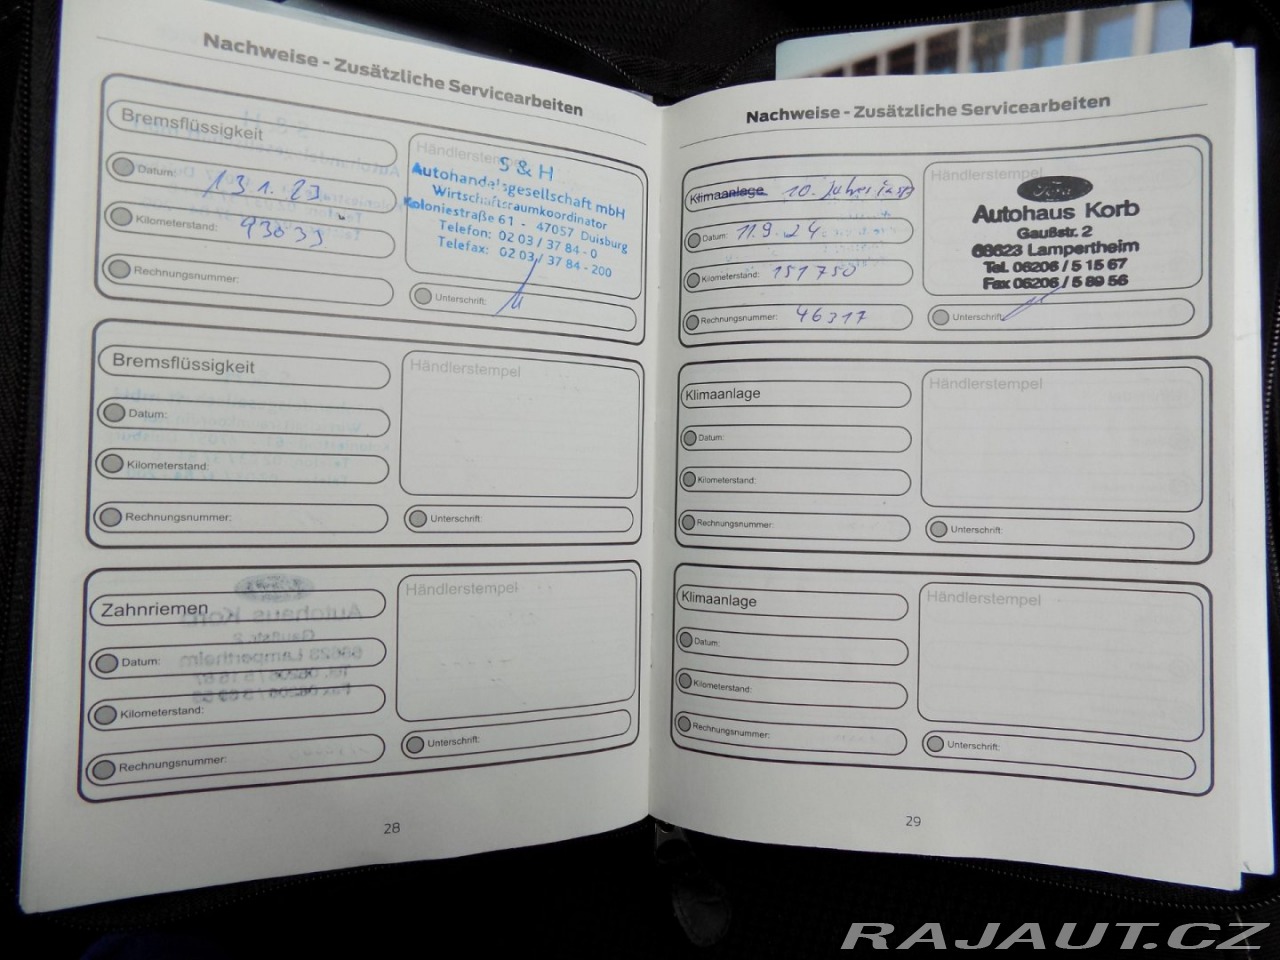 Nachweise - Zusätzliche Servicearbeiten
Bremsflüssigkeit
Datum: 13.1.23
Kilometerstand: 93033
Rechnungsnummer:
Händlerstempel
S & H
Autohandelsgesellschaft mbH
Wirtschaftsraumkoordinator
Koloniestraße 61 - 47057 Duisburg
Telefon: 02 03 / 37 84 - 0
Telefax: 02 03 / 37 84 - 200
Unterschrift:
Bremsflüssigkeit
Datum:
Kilometerstand:
Rechnungsnummer:
Händlerstempel
Unterschrift:
Zahnriemen
Datum:
Kilometerstand:
Rechnungsnummer:
Händlerstempel
Unterschrift:
28
Nachweise - Zusätzliche Servicearbeiten
Klimaanlage 10. Jahres
Datum: 11.9.24
Kilometerstand: 151750
Rechnungsnummer: 46317
Händlerstempel
Ford
Autohaus Korb
Gaußstr. 2
68623 Lampertheim
Tel. 06206 / 5 15 67
Fax 06206 / 5 89 56
Unterschrift:
Klimaanlage
Datum:
Kilometerstand:
Rechnungsnummer:
Händlerstempel
Unterschrift:
Klimaanlage
Datum:
Kilometerstand:
Rechnungsnummer:
Händlerstempel
Unterschrift:
29
RAJAUT.CZ